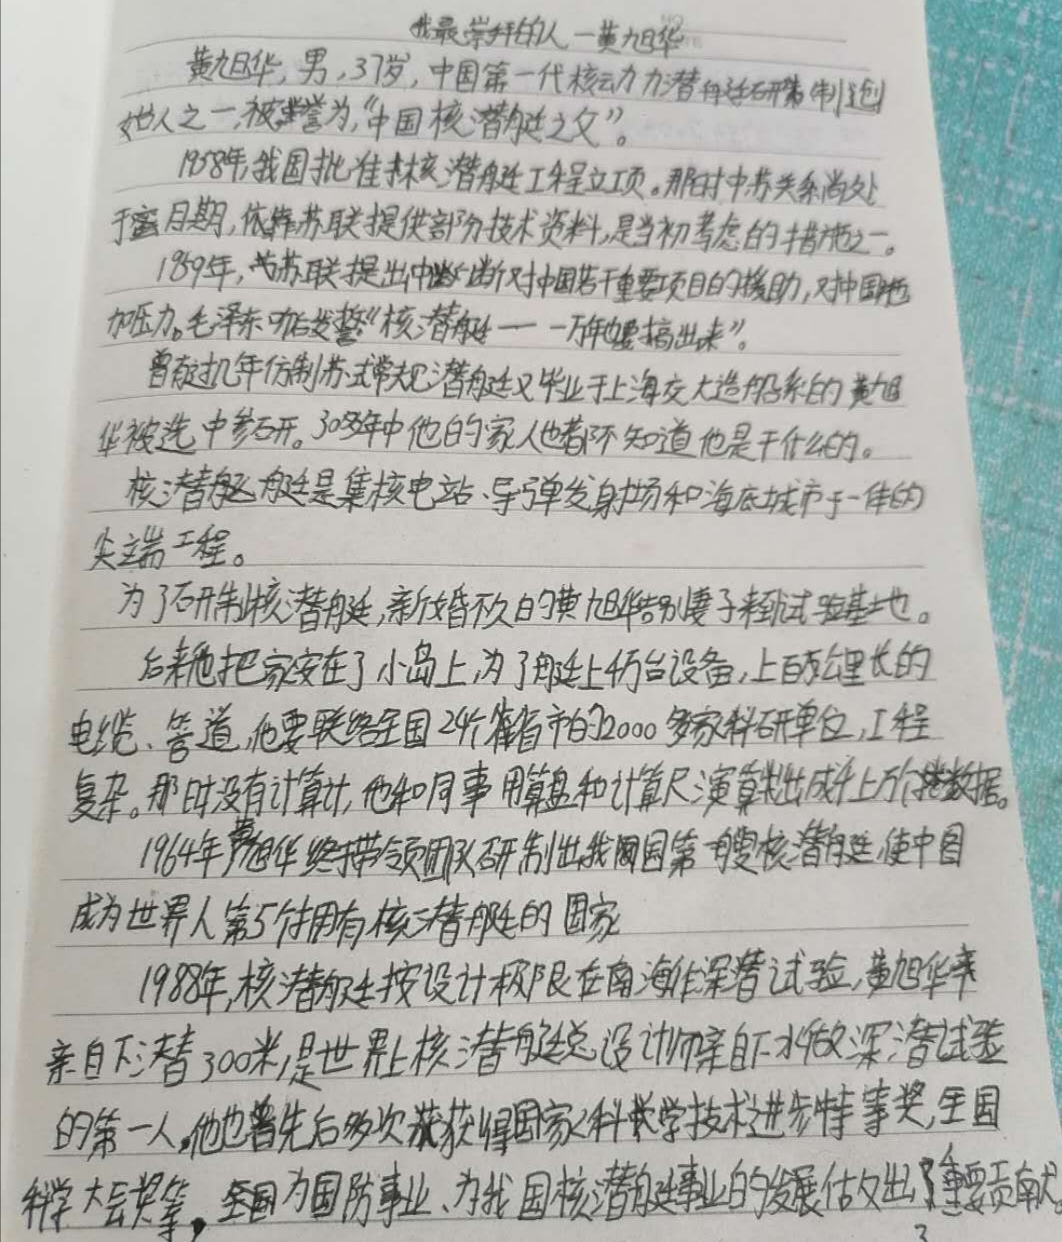 我最崇拜的人一黄旭华
黄旭华,男,37岁,中国第一代核动力潜艇研制创
始人之一,被誉为,“中国核潜艇之父”。
1958年,我国批准核潜艇工程立项。那时中苏关系尚处
于蜜月期,依靠苏联提供部分技术资料,是当初考虑的措施之一。
1959年,苏联提出中断对中国若干重要项目的援助,对中国施
加压力。毛泽东发誓“核潜艇一一万年也要搞出来”。
曾有过几年仿制苏式常规潜艇又毕业于上海交大造船系的黄旭
华被选中参研。30多年中他的家人也都不知道他是干什么的。
核潜艇艇是集核电站、导弹发射场和海底城市于一体的
尖端工程。
为了研制核潜艇,新婚不久的黄旭华告别妻子来到试验基地。
后来他把家安在了小岛上,为了艇上4万台设备,上百万公里长的
电缆、管道,他要联络全国24个省市的2000多家科研单位,工程
复杂。那时没有计算计,他和同事用算盘和计算尺演算出成千上万个数据。
1964年黄旭华终于带领团队研制出我国第一艘核潜艇,使中国
成为世界人第5个拥有核潜艇的国家
1988年,核潜艇按设计极限在南海作深潜试验,黄旭华亲
亲自下潜300米,是世界上核潜艇总设计师亲自下水做深潜试验
的第一人。他也曾先后多次获得国家科学技术进步特等奖,全国
科学大会奖等,为国防事业、为我国核潜艇事业的发展做出了重要贡献
2